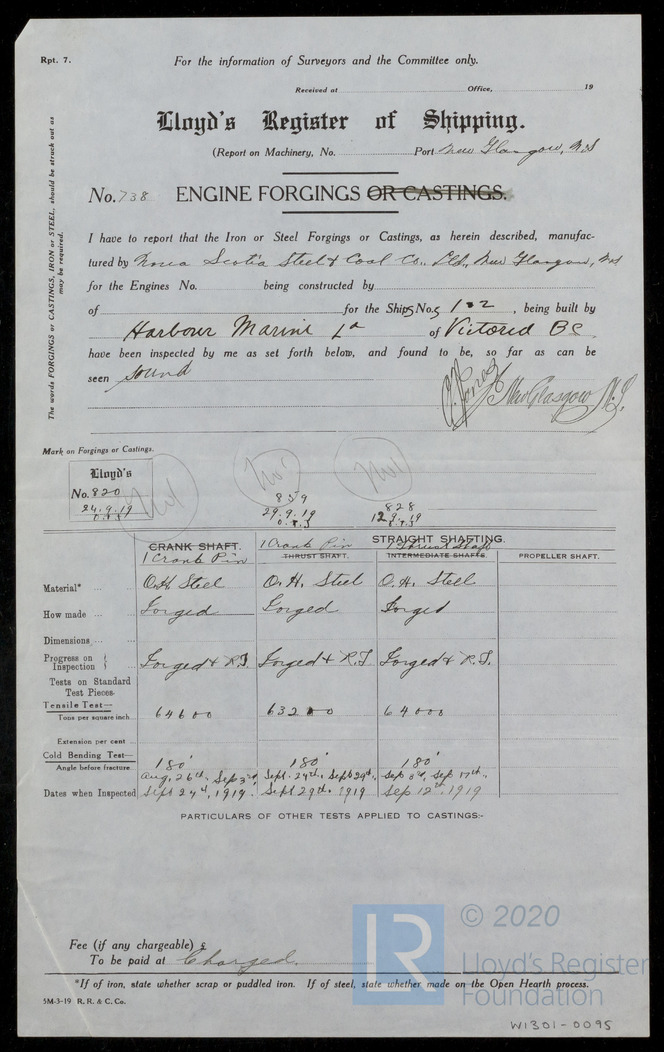 Rpt. 7.
For the information of Surveyors and the Committee only.
Received at Office, 19
Lloyd's Register of Shipping.
(Report on Machinery, No. Port New Glasgow, N.S
No. 738 ENGINE FORGINGS OR CASTINGS.
The words FORGINGS or CASTINGS, IRON or STEEL, should be struck out as
may be required.
I have to report that the Iron or Steel Forgings or Castings, as herein described, manufac-
tured by Nova Scotia Steel & Coal Co., Ltd., New Glasgow, NS
for the Engines No. being constructed by
of for the Ships Nos 1 2, being built by
Harbour Marine of Victoria BC
have been inspected by me as set forth below, and found to be, so far as can be
seen sound
New Glasgow N.S.
Mark on Forgings or Castings.
Lloyd's
No. 820
24.9.19
859
29.9.19
828
12.9.19
CRANK SHAFT. 1 Crank Pin STRAIGHT SHAFTING. 1 Thrust Shaft
1 Crank Pin THRUST SHAFT. INTERMEDIATE SHAFTS. PROPELLER SHAFT.
Material* O.H. Steel O.H. Steel O.H. Steel
How made Forged Forged Forged
Dimensions
Progress on Inspection Forged & R.T Forged & R.T Forged & R.T.
Tests on Standard
Test Pieces.
Tensile Test—
Tons per square inch 64600 63200 64000
Extension per cent
Cold Bending Test—
Angle before fracture 180° 180° 180°
Aug. 26th, Sep 3rd, Sept. 24th, Sept 29th, Sep 3rd, Sep 17th,
Dates when Inspected Sept 24th, 1919. Sept 29th 1919 Sep 12th, 1919
PARTICULARS OF OTHER TESTS APPLIED TO CASTINGS:-
Fee (if any chargeable) £
To be paid at Charged.
*If of iron, state whether scrap or puddled iron. If of steel, state whether made on the Open Hearth process.
5M-3-19 R. R. & C. Co.
LR
© 2020
Lloyd's Register
Foundation
W1301-0095